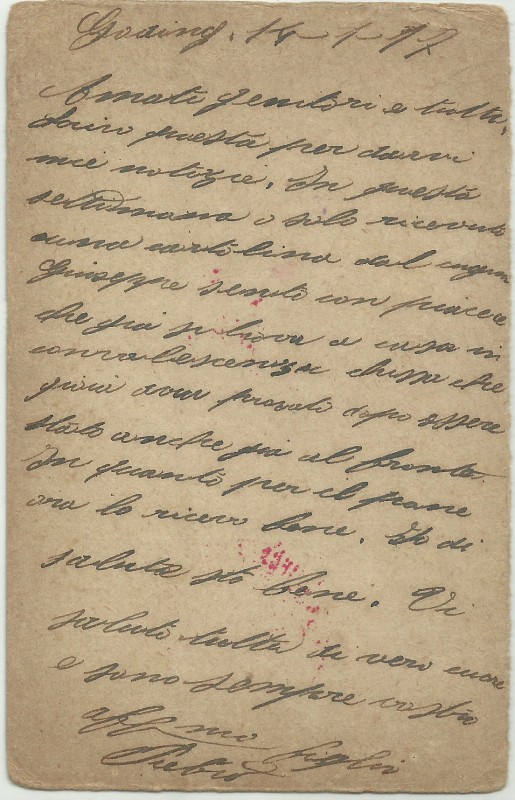 Göding, 14-1-17
Amati genitori e tutti,
Scrivo questa per darvi
mie notizie. In questa
settimana o solo ricevuto
una cartolina dal cugin
Giuseppe sento con piacere
che già si trova a casa in
convalescenza chissa che
gioia avrà provato dopo essere
stato anche già al fronte.
In quanto per il pane
ora lo ricevo bene. Io di
salute sto bene. Vi
saluto tutti di vero cuore
e sono sempre vostro
aff.mo figlio
Pietro